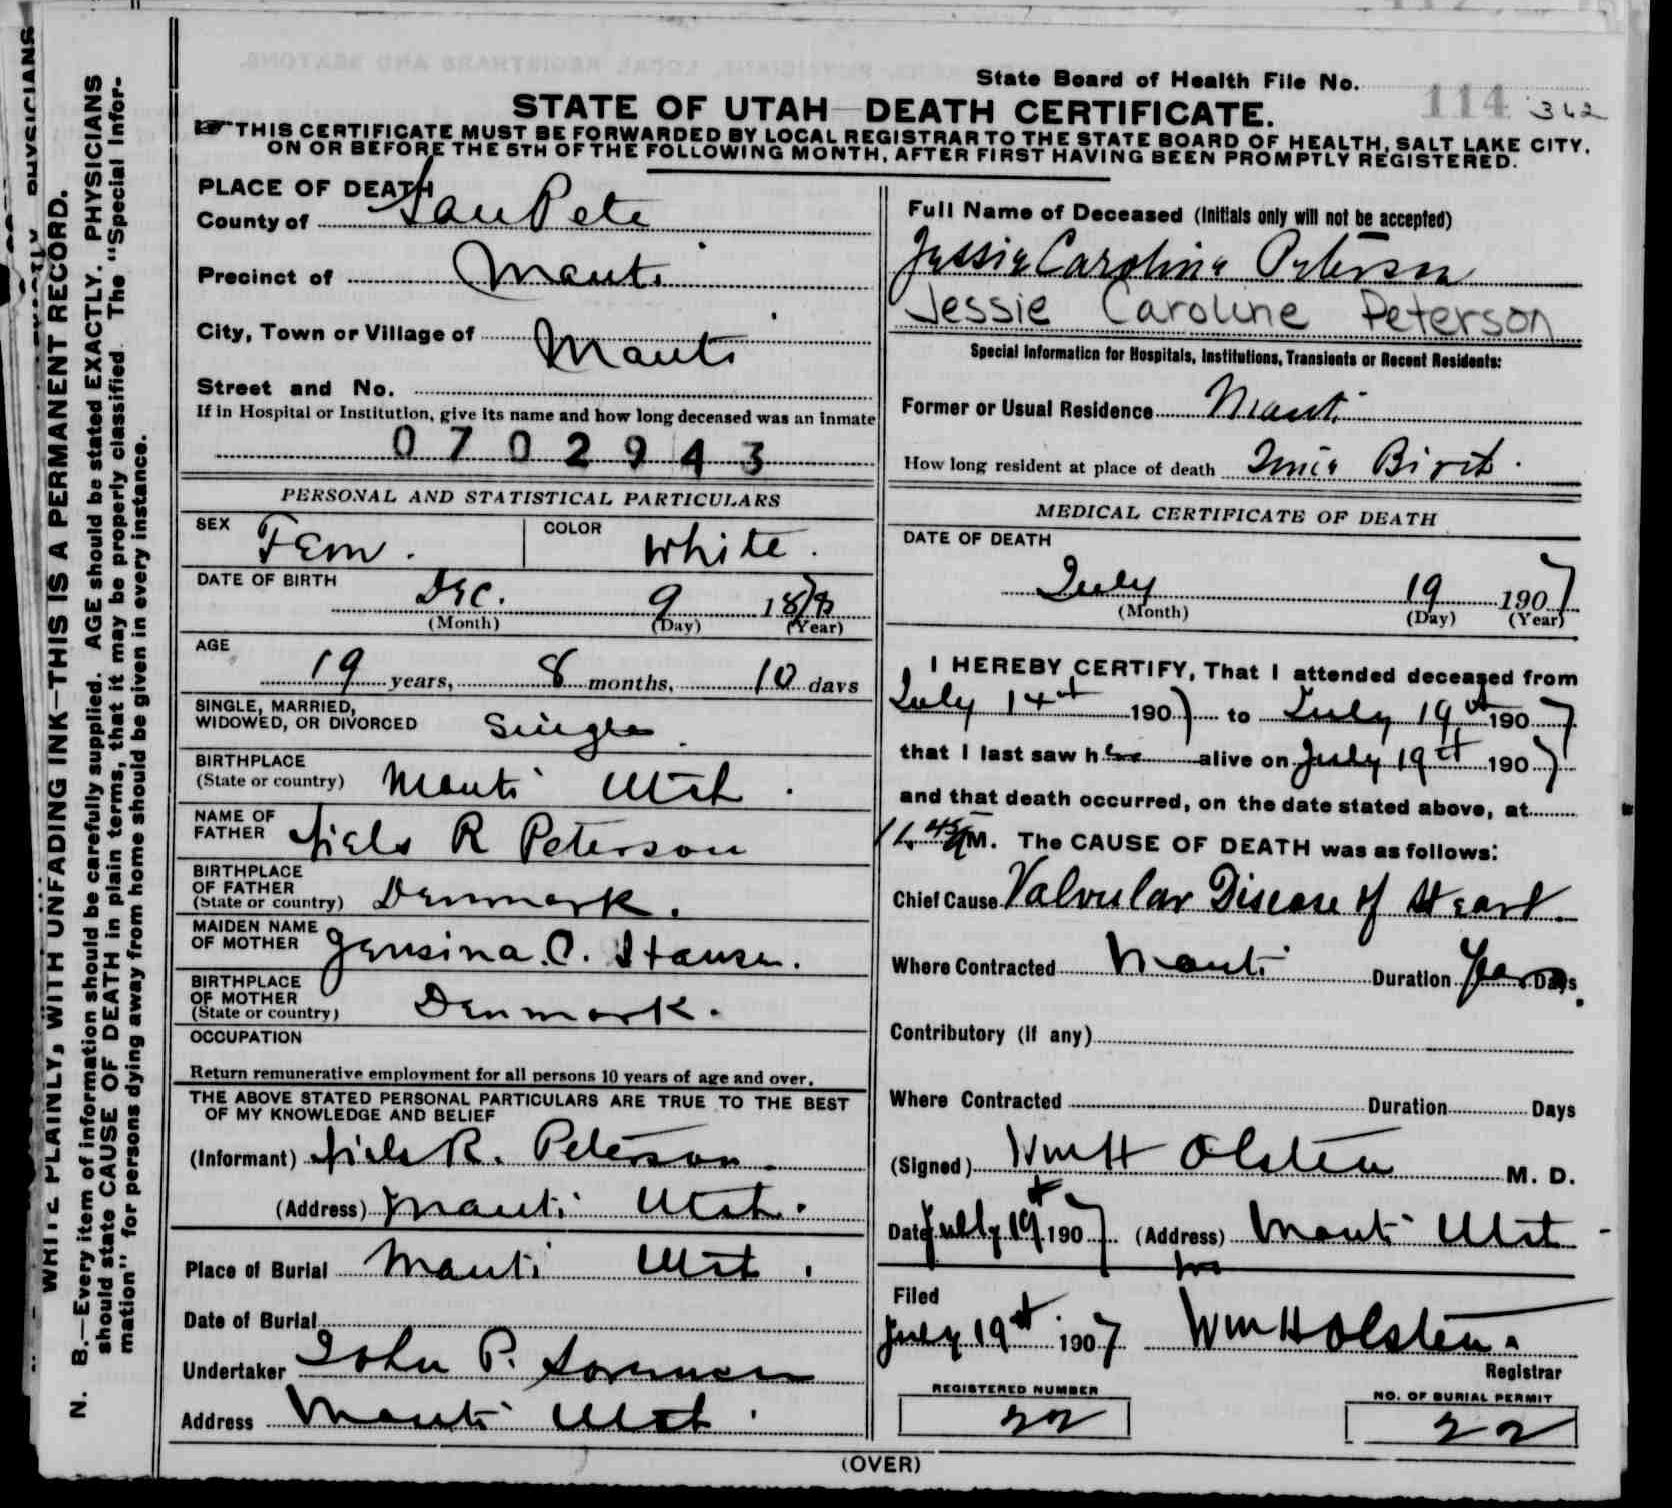 State Board of Health File No. 114 342
STATE OF UTAH—DEATH CERTIFICATE.
THIS CERTIFICATE MUST BE FORWARDED BY LOCAL REGISTRAR TO THE STATE BOARD OF HEALTH, SALT LAKE CITY,
ON OR BEFORE THE 5TH OF THE FOLLOWING MONTH, AFTER FIRST HAVING BEEN PROMPTLY REGISTERED.
WRITE PLAINLY, WITH UNFADING INK—THIS IS A PERMANENT RECORD.
N. B.—Every item of information should be carefully supplied. AGE should be stated EXACTLY. PHYSICIANS
should state CAUSE OF DEATH in plain terms, that it may be properly classified. The "Special Infor-
mation" for persons dying away from home should be given in every instance.
PLACE OF DEATH
County of SanPete
Precinct of Manti
City, Town or Village of Manti
Street and No.
If in Hospital or Institution, give its name and how long deceased was an inmate
0702943
PERSONAL AND STATISTICAL PARTICULARS
SEX Fem. COLOR White.
DATE OF BIRTH Dec. 9 18
(Month) (Day) (Year)
AGE 19 years, 8 months, 10 days
SINGLE, MARRIED,
WIDOWED, OR DIVORCED Single.
BIRTHPLACE
(State or country) Manti Utah.
NAME OF
FATHER Niels R Peterson
BIRTHPLACE
OF FATHER
(State or country) Denmark.
MAIDEN NAME
OF MOTHER Jensina C.
BIRTHPLACE
OF MOTHER
(State or country) Denmark.
OCCUPATION
Return remunerative employment for all persons 10 years of age and over.
THE ABOVE STATED PERSONAL PARTICULARS ARE TRUE TO THE BEST
OF MY KNOWLEDGE AND BELIEF
(Informant) Niels R. Peterson.
(Address) Manti Utah.
Place of Burial Manti Utah.
Date of Burial
Undertaker John P. Sorensen
Address Manti Utah.
Full Name of Deceased (Initials only will not be accepted)
Jessie Caroline Peterson
Jessie Caroline Peterson
Special Information for Hospitals, Institutions, Transients or Recent Residents:
Former or Usual Residence Manti
How long resident at place of death Since Birth.
MEDICAL CERTIFICATE OF DEATH
DATE OF DEATH
July 19 1907
(Month) (Day) (Year)
I HEREBY CERTIFY, That I attended deceased from
July 14th 1907 to July 19th 1907
that I last saw her alive on July 19th 1907
and that death occurred, on the date stated above, at
AM. The CAUSE OF DEATH was as follows:
Chief Cause Valvular Disease of Heart.
Where Contracted Manti Duration Years Days.
Contributory (if any)
Where Contracted Duration Days
(Signed) Wm H Olsten M. D.
Date July 19th 1907 (Address) Manti Utah
Filed
July 19th 1907 Wm H Olsten.
Registrar
REGISTERED NUMBER
22
NO. OF BURIAL PERMIT
22
(OVER)